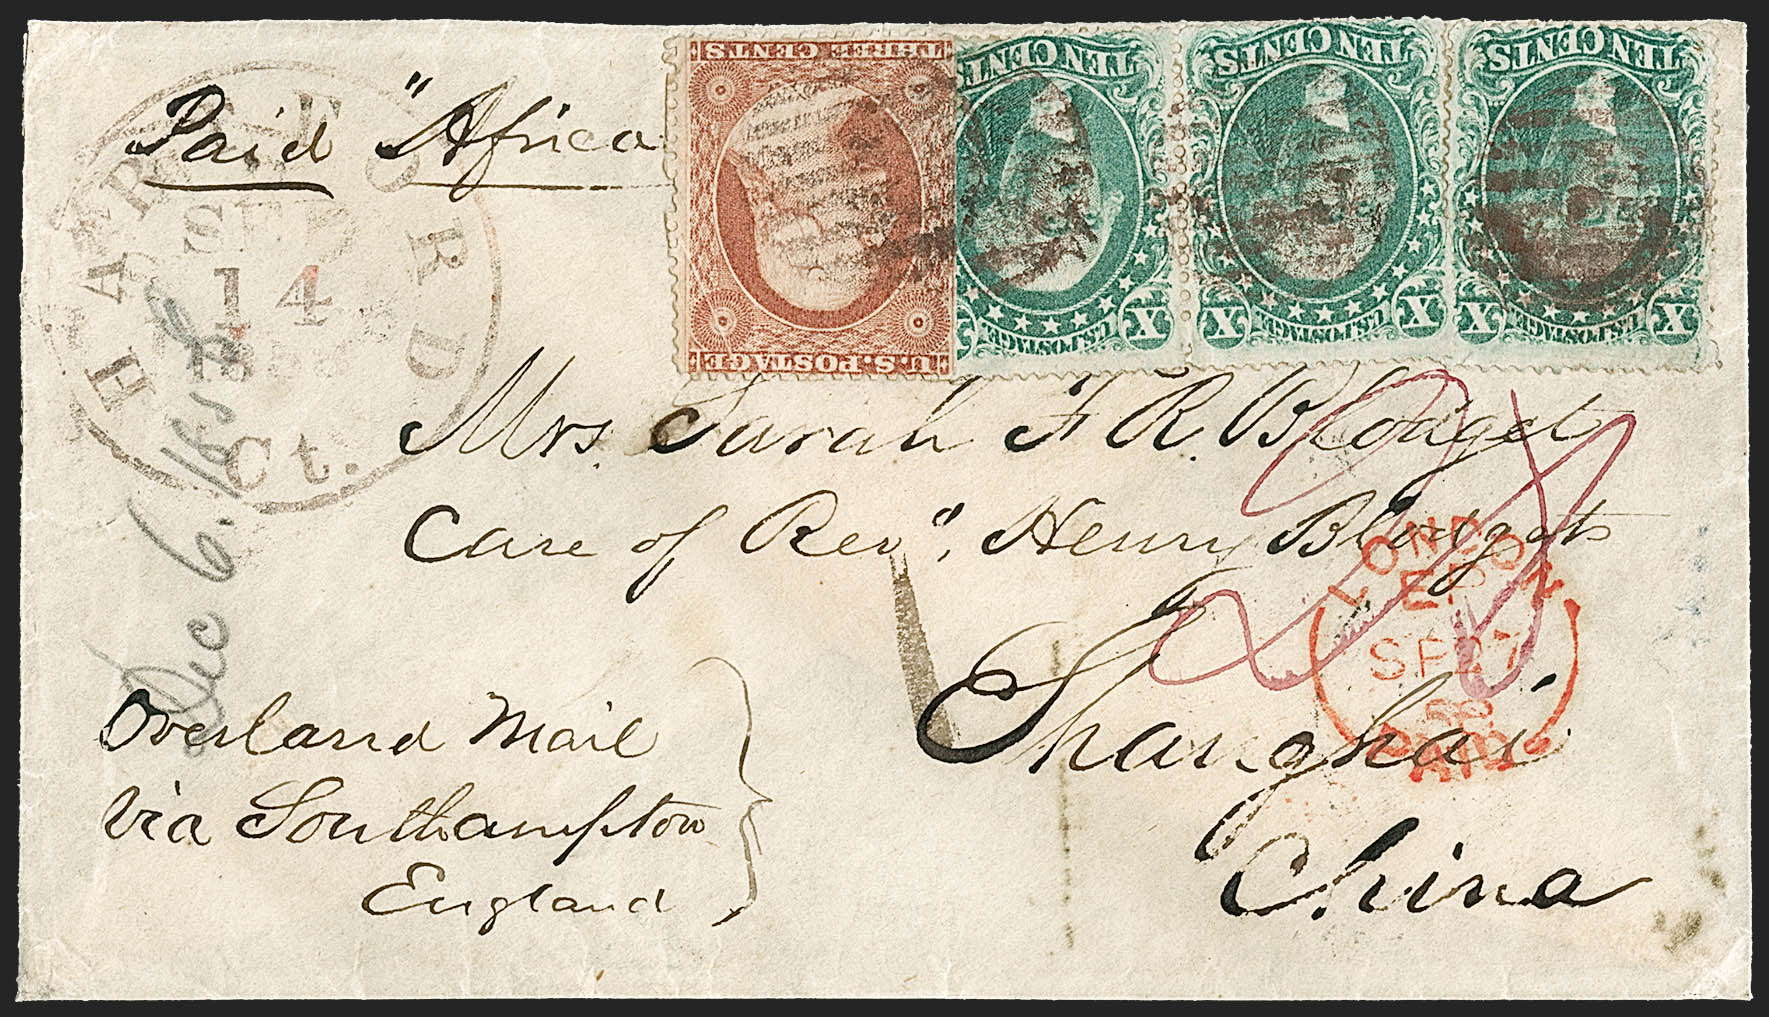 THREE CENTS
U.S. POSTAGE
TEN CENTS
U.S. POSTAGE
X
TEN CENTS
X U.S. POSTAGE X
TEN CENTS
X U.S. POSTAGE X
HARTFORD
SEP
14
1858
Ct.
Paid "Africa
Dec 6. 1858
Mrs. Sarah F. R. Blodget
Care of Revd. Henry Blodget
Shanghai
China
Overland Mail
Via Southampton
England
LONDON
EP
SP 27
58
PAID